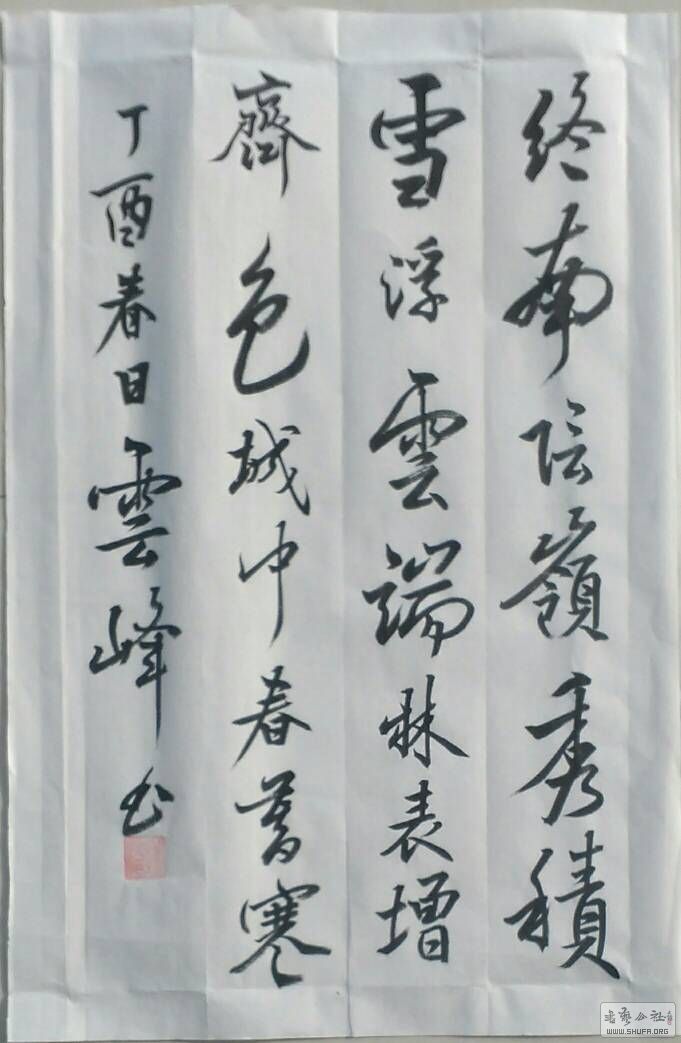 終南陰嶺秀積
雪浮雲端林表增
齊色城中春暮寒
丁酉春日雲峰书
书艺公社
WWW.SHUFA.ORG